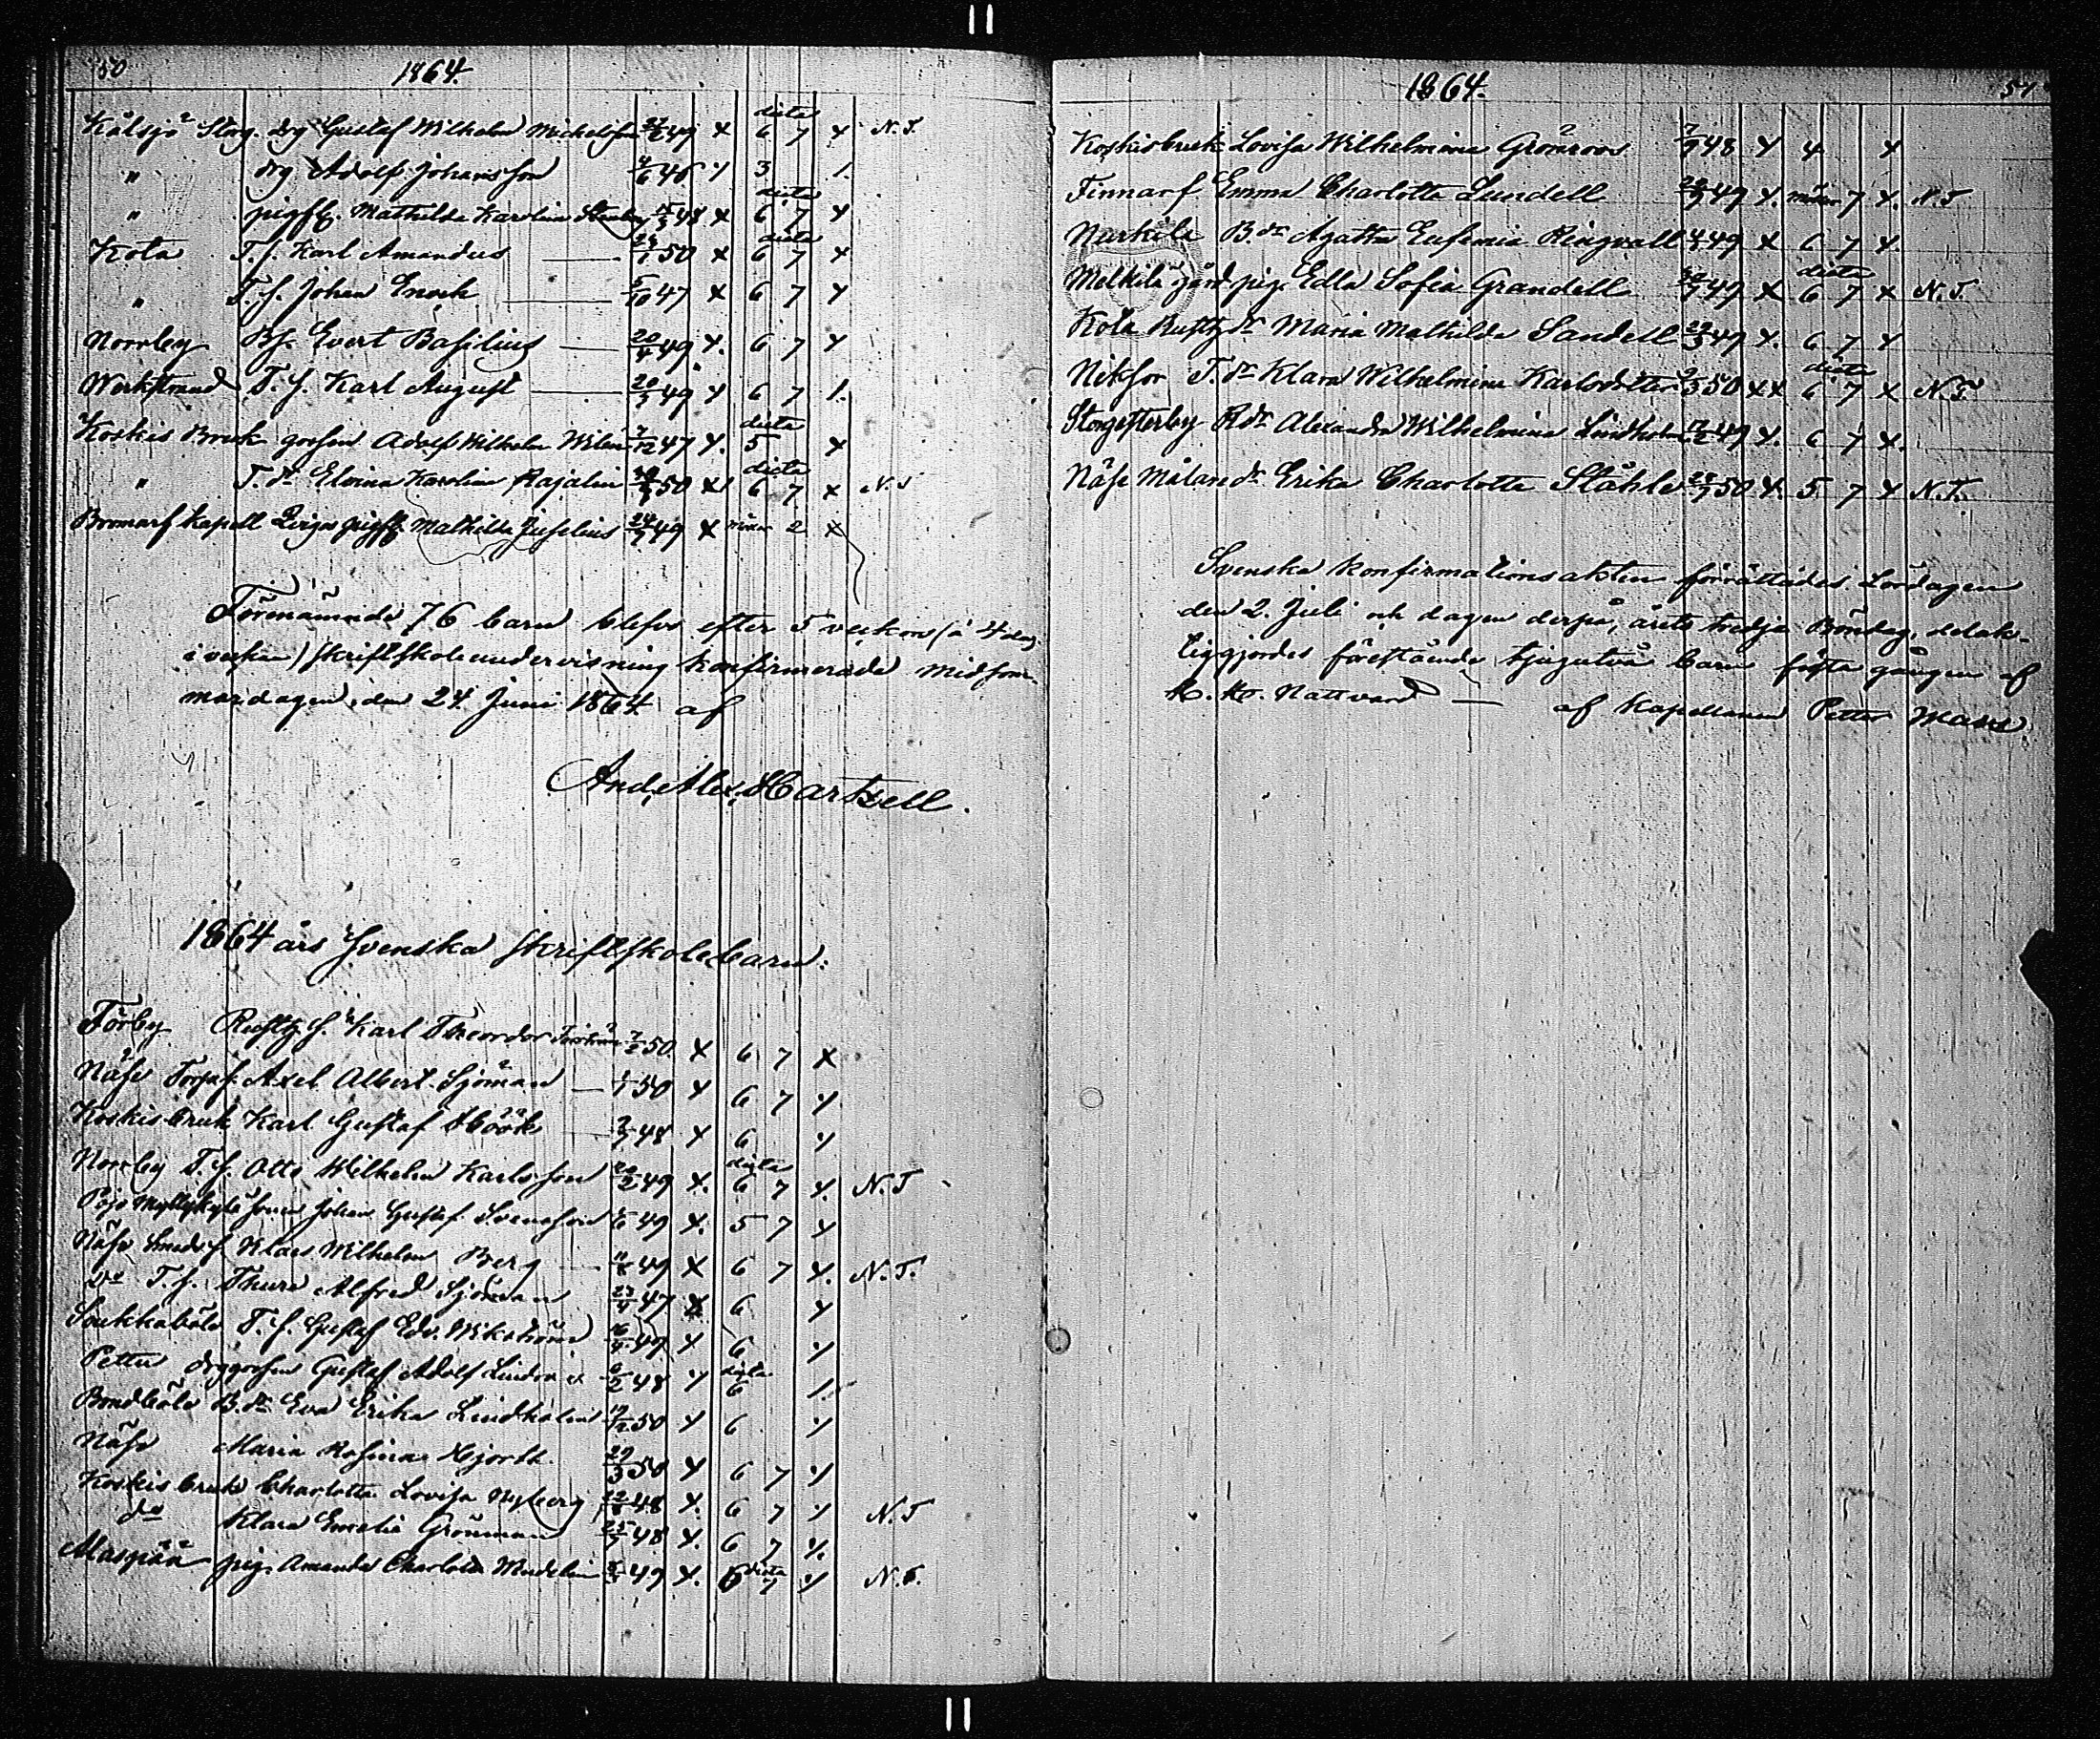 50
1864.
Kålsjö Storg. drg Gustaf Wilhelm Michelsson 49 x dicta 6 7 x N.T.
" drg Adolf Johansson 4/6 46 x 3 x
" pigfl. Mathilda Karolina 48 x dicta 6 7 x
Kota T.s. Karl Amandus 50 x dicta 6 7 x
" T.s. Johan Enock 5/10 47 x 6 7 x
Norrby Bs. Evert Basilius 20/4 49 x. 6 7 x
Werkstrand T.s. Karl August 49 x 6 7 x
Koskis Bruk gossen Adolf Wilhelm Wilen 7/12 47 x. dicta 5 x
" T.dr Elvina Karolina Rajalin 50 x dicta 6 7 x N.T
Bromarf Kapell Mathilda Juselius 49 x 2 x
Förnämnde 76 barn blefvo efter 5 veckors (à 4 dag.
i veckan) skriftskoleundervisning konfirmerade Midsom-
mardagen, den 24. Juni 1864 af
And. Alex. Hartzell.
1864 års Svenska Skriftskolebarn:
Förby Rustg s. Karl Theordor 50 x 6 7 x
Näse Torps. Axel Albert Sjöman 50 x 6 7 x
Koskis bruk Karl Gustaf Höök 48 x 6 x
Norrby T.s. Otto Wilhelm Karlsson 49 x. dicta 6 7 x. N.T
Pojo Myllykylä sonen Johan Gustaf Svensson 49 x. 5 7 x
Näse Smeds s. Klaes Wilhelm Berg 11/8 49 x 6 7 x. N.T.
Do T.s. Thure Alfred Sjöman 23/4 47 x 6 x
T.s. Gustaf Edv. Wikström 16/4 49 x 6 x
Pettu drggossen Gustaf Adolf 48 x dicta 6 x
Bondböle B.dr Eva Erika Lindholm 50 x 6 x
Näse Maria Rosina Hjorth 29/3 50 x 6 7 x
Koskis bruk Charlotta Lovisa Nyberg 48 x. 6 7 x N.T
do Klara Emelie Grönman 48 x. 6 7 x.
pig. Amanda Charlotta 49 x. dicta 6 7 x N.T.
1864.
51
Koskisbruk Lovisa Wilhelmina Grönroos 48 x 4 x
Finnarf Emma Charlotta Lundell 49 x. 7 x. N.T
Nurkila B.dr Agatha Eufemia Ringvall 49 x 6 7 x.
Melkila gård pig. Edla Sofia Grandell 49 x dicta 6 7 x N.T.
Kota Rustg dr Maria Mathilda Sandell 49 x. 6 7 x
Niksor T.dr Klara Wilhelmina Karlsdotter 50 x x dicta 6 7 x N.T.
Storgesterby Rdr Alexandra Wilhelmina Lindholm 49 x. 6 7 x.
Näse Målare dr Erika Charlotta Ståhle 50 x. 5 7 x N.T.
Svenska konfirmationsakten förrättades Lördagen
den 2. Juli och dagen derpå, årets tredje Böndag, delak-
tiggjordes föreståënde tjugutvå barn första gången af
H. H. Nattvard — af Kapellanen Petter Mans